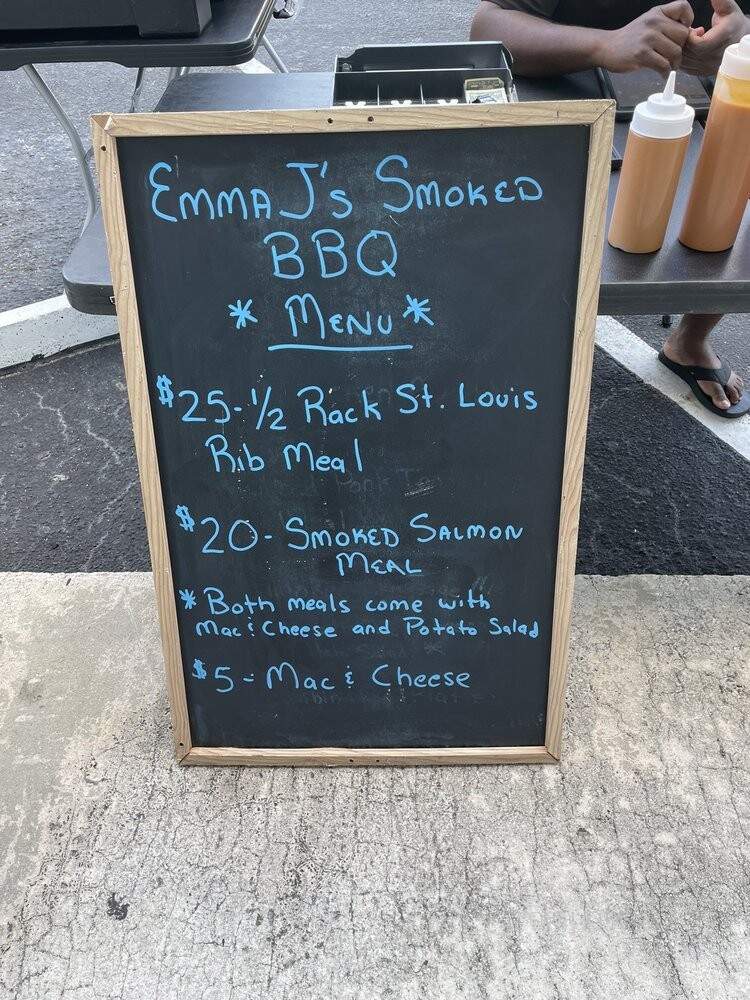 Emma J's Smoked
BBQ
* Menu *
$25- 1/2 Rack St. Louis
Rib Meal
$20- Smoked Salmon
Meal
* Both meals come with
Mac & Cheese and Potato Salad
$5 - Mac & Cheese